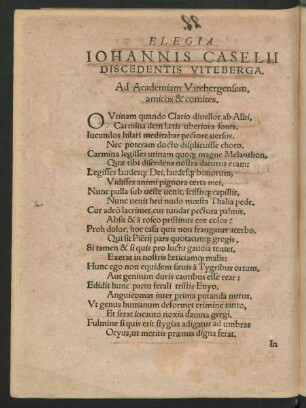 ELEGIA
IOHANNIS CASELII
DISCEDENTIS VITEBERGA.
Ad Academiam Vitebergensem,
amicos & comites.
O Vtinam quando Clario divellor ab Albi,
Carmina dem lætis uberiora sonis.
Iucundos hilari meditabar pectore uersus,
Nec poteram docto displicuisse choro.
Carmina legisses utinam quoq; magne Melanthon,
Quæ tibi discedens nostra dat
Legisses laudesq; Dei, laudesq; bonorum,
Vidisses animi pignora certa mei,
Nunc pulla sub ueste uenit, scissisq; capillis,
Nunc uenit heu nudo mœsta Thalia pede.
Cur adeo lacrimet, cur tundat pectora palmis,
Absit & à roseo pristinus ore color:
Proh dolor, hoc casu quis non frangatur acerbo,
Qui sit Pierij pars quotacunq; gregis.
Si tamen & si quis pro luctu gaudia tentet,
Exerat in nostris lætitiamq; malis:
Hunc ego non equidem satuis à Tygribus ortum,
Aut genitum duris cautibus esse rear:
Edidit hunc partu ferali tristis Enyo,
Anguicomas inter prima putanda nurus,
Vt genus humanum deformet crimine tanto,
Et ferat incauto noxia damna gregi.
Fulmine si quis erit stygias adigatur ad umbras
Ocyus, ut meritis præmia digna ferat.
In